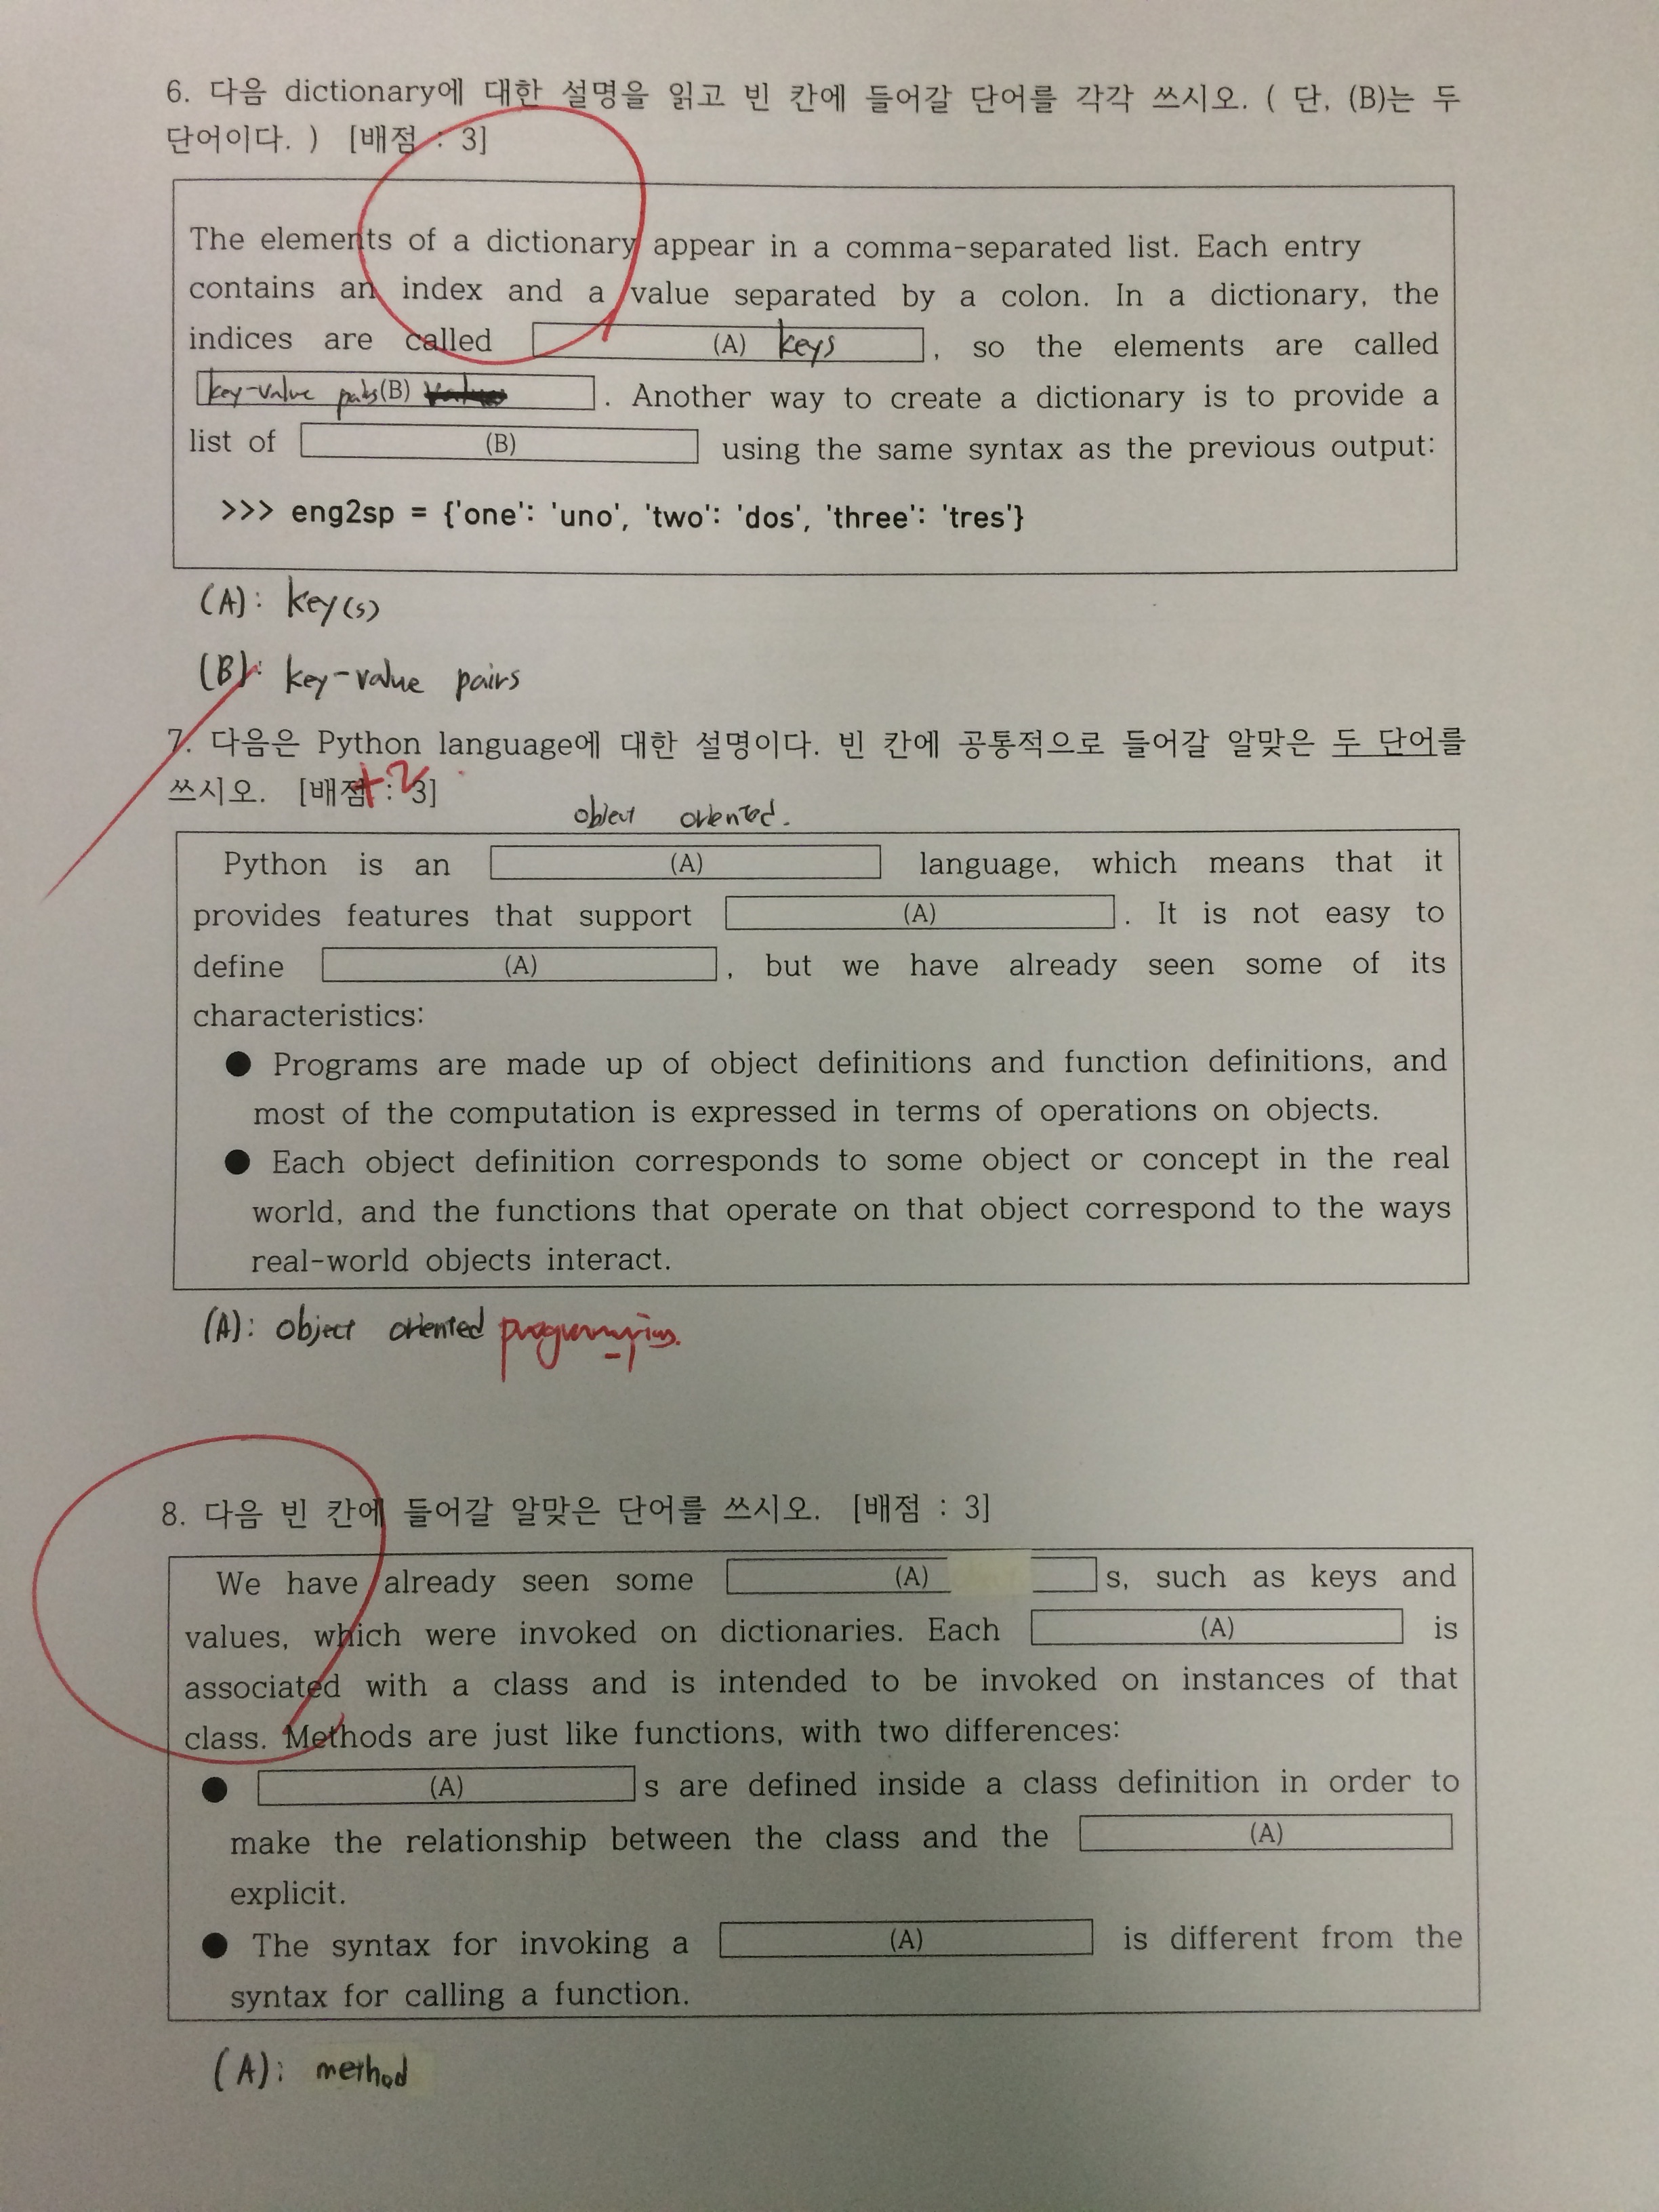 6. 다음 dictionary에 대한 설명을 읽고 빈 칸에 들어갈 단어를 각각 쓰시오. ( 단, (B)는 두
단어이다. ) [배점 : 3]
The elements of a dictionary appear in a comma-separated list. Each entry
contains an index and a value separated by a colon. In a dictionary, the
indices are called (A) keys , so the elements are called
key-value pairs (B) . Another way to create a dictionary is to provide a
list of (B) using the same syntax as the previous output:
>>> eng2sp = {'one': 'uno', 'two': 'dos', 'three': 'tres'}
(A): key(s)
(B): key-value pairs
7. 다음은 Python language에 대한 설명이다. 빈 칸에 공통적으로 들어갈 알맞은 두 단어를
쓰시오. [배점 : 3]
+2
object oriented.
Python is an (A) language, which means that it
provides features that support (A) . It is not easy to
define (A) , but we have already seen some of its
characteristics:
● Programs are made up of object definitions and function definitions, and
most of the computation is expressed in terms of operations on objects.
● Each object definition corresponds to some object or concept in the real
world, and the functions that operate on that object correspond to the ways
real-world objects interact.
(A): object oriented programming.
8. 다음 빈 칸에 들어갈 알맞은 단어를 쓰시오. [배점 : 3]
We have already seen some (A) s, such as keys and
values, which were invoked on dictionaries. Each (A) is
associated with a class and is intended to be invoked on instances of that
class. Methods are just like functions, with two differences:
● (A) s are defined inside a class definition in order to
make the relationship between the class and the (A)
explicit.
● The syntax for invoking a (A) is different from the
syntax for calling a function.
(A): method